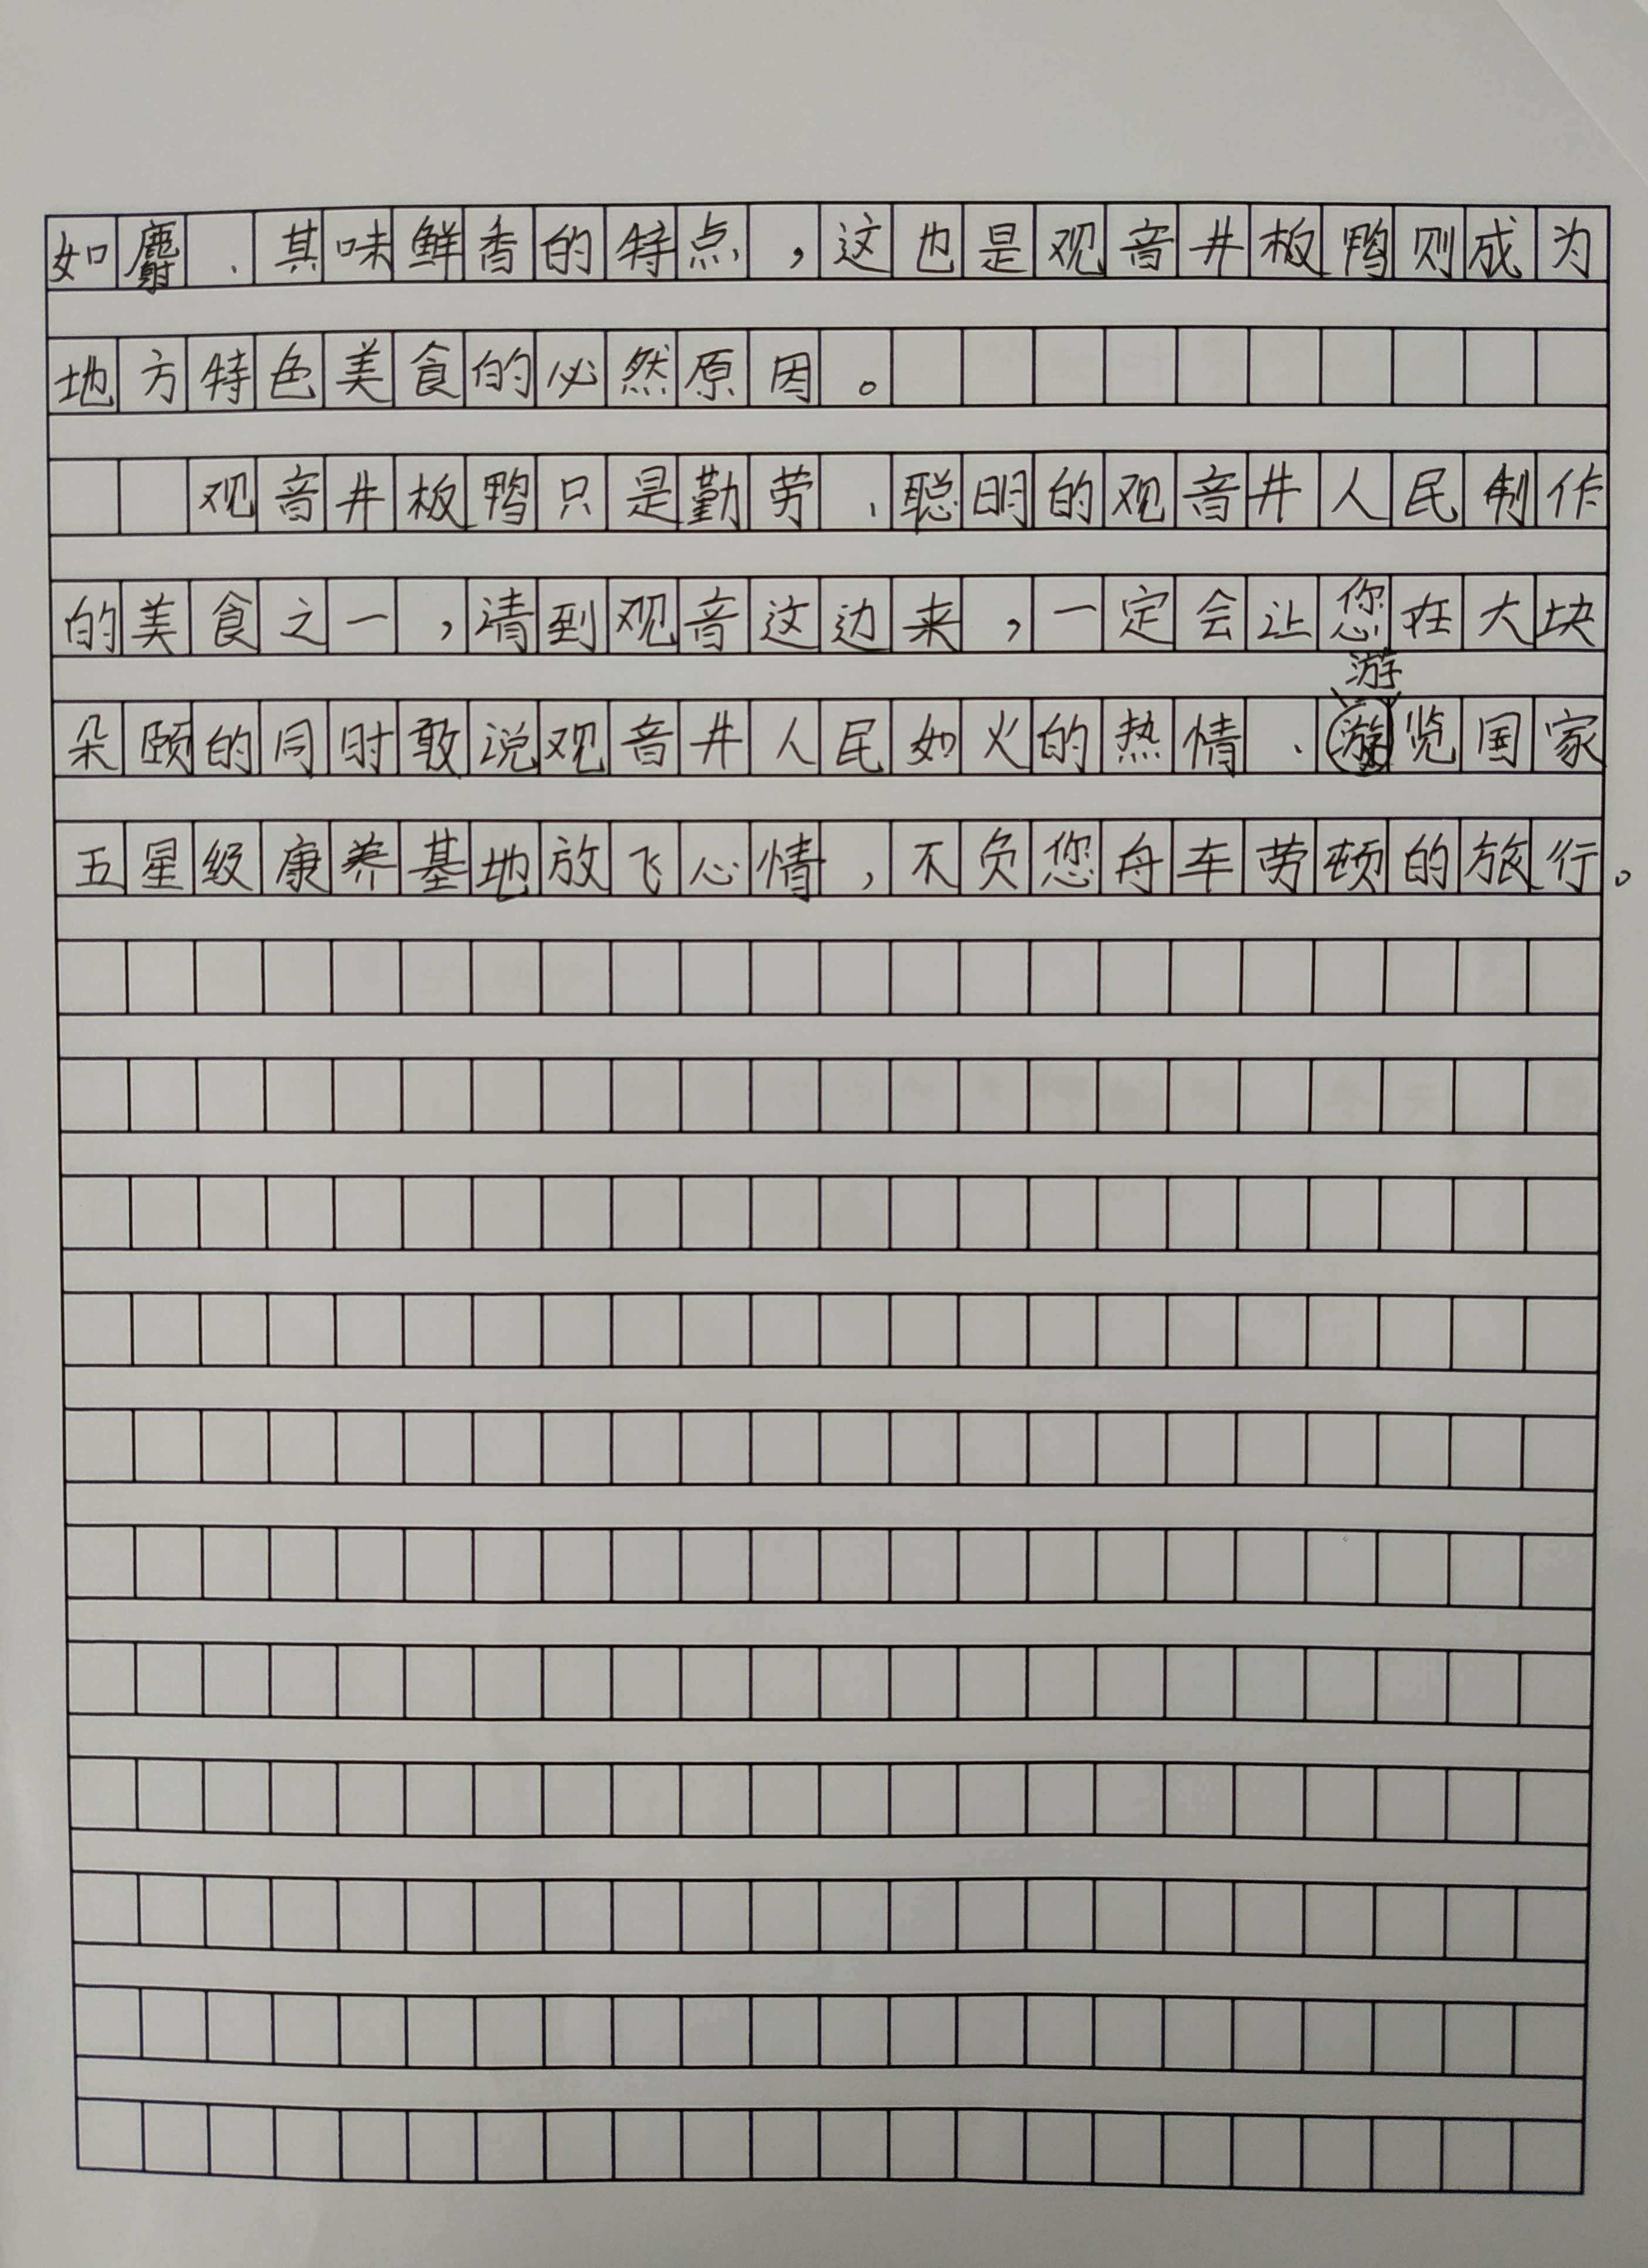 如麝、其味鲜香的特点，这也是观音井板鸭则成为
地方特色美食的必然原因。
观音井板鸭只是勤劳、聪明的观音井人民制作
的美食之一，请到观音这边来，一定会让您在大块
游
朵颐的同时敢说观音井人民如火的热情、游览国家
五星级康养基地放飞心情，不负您舟车劳顿的旅行。